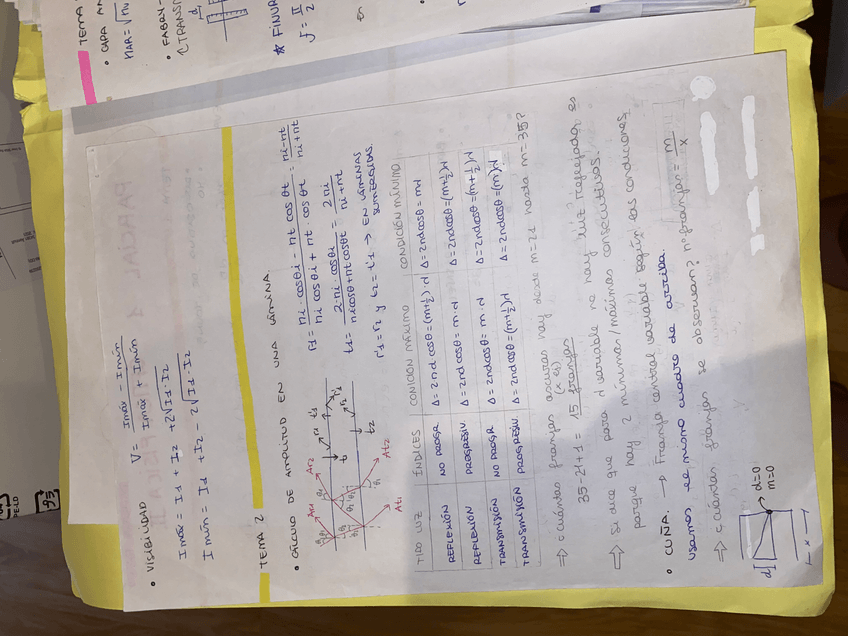 TEMA
• CAPA AN
nAR = √nu
• FABRY-
↑TRANSM
d
★ FINUR
J = II
2
en
• VISIBILIDAD V = Imáx - Imín / Imáx + Imín
Imáx = I1 + I2 + 2√I1·I2
Imín = I1 + I2 - 2√I1·I2
TEMA 2
• CÁLCULO DE AMPLITUD EN UNA LÁMINA
r1 = ni·cosθi - nt cosθt / ni cosθi + nt cosθt = ni-nt / ni+nt
t1 = 2·ni·cosθi / nicosθ+ntcosθt = 2ni / ni+nt
r'1 = r2 y t2 = t'1 → EN LÁMINAS
SUMERGIDAS.
Ar1 Ar2
At1 At2
TIPO LUZ ÍNDICES CONICIÓN MÁXIMO CONDICIÓN MÍNIMO
REFLEXIÓN NO PROGR Δ = 2nd cosθ = (m+½)·λ Δ = 2ndcosθ = mλ
REFLEXIÓN PROGRESIV. Δ = 2nd cosθ = m·λ Δ = 2ndcosθ = (m+½)λ
TRANSMISIÓN NO PROGR Δ = 2ndcosθ = m·λ Δ = 2ndcosθ = (m+½)λ
TRANSMISIÓN PROGRESIV. Δ = 2ndcosθ = (m+½)λ Δ = 2ndcosθ = (m)λ
⇒ ¿cuántas franjas oscuras hay desde m=21 hasta m=35?
(x ej)
35-21+1 = 15 franjas
⇒ Si dice que para λ variable no hay luz reflejada es
porque hay 2 mínimas/máximas consecutivas.
• CUÑA. → Franja central variable según las condiciones
usamos el mismo cuadro de arriba.
⇒ ¿cuántas franjas se observan? nº franjas = m / x
d
d=0
m=0
x